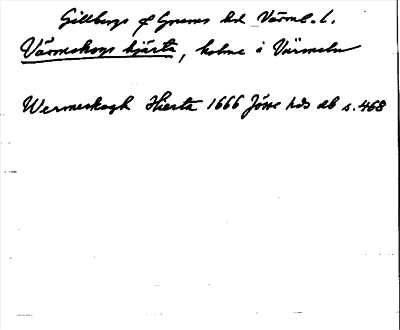 Gillbergs o Grums hd Värml. l.
Värmskogs hjärta, holme i Värmeln
Wermeskogh Hierta 1666 Jösse hds db s. 468